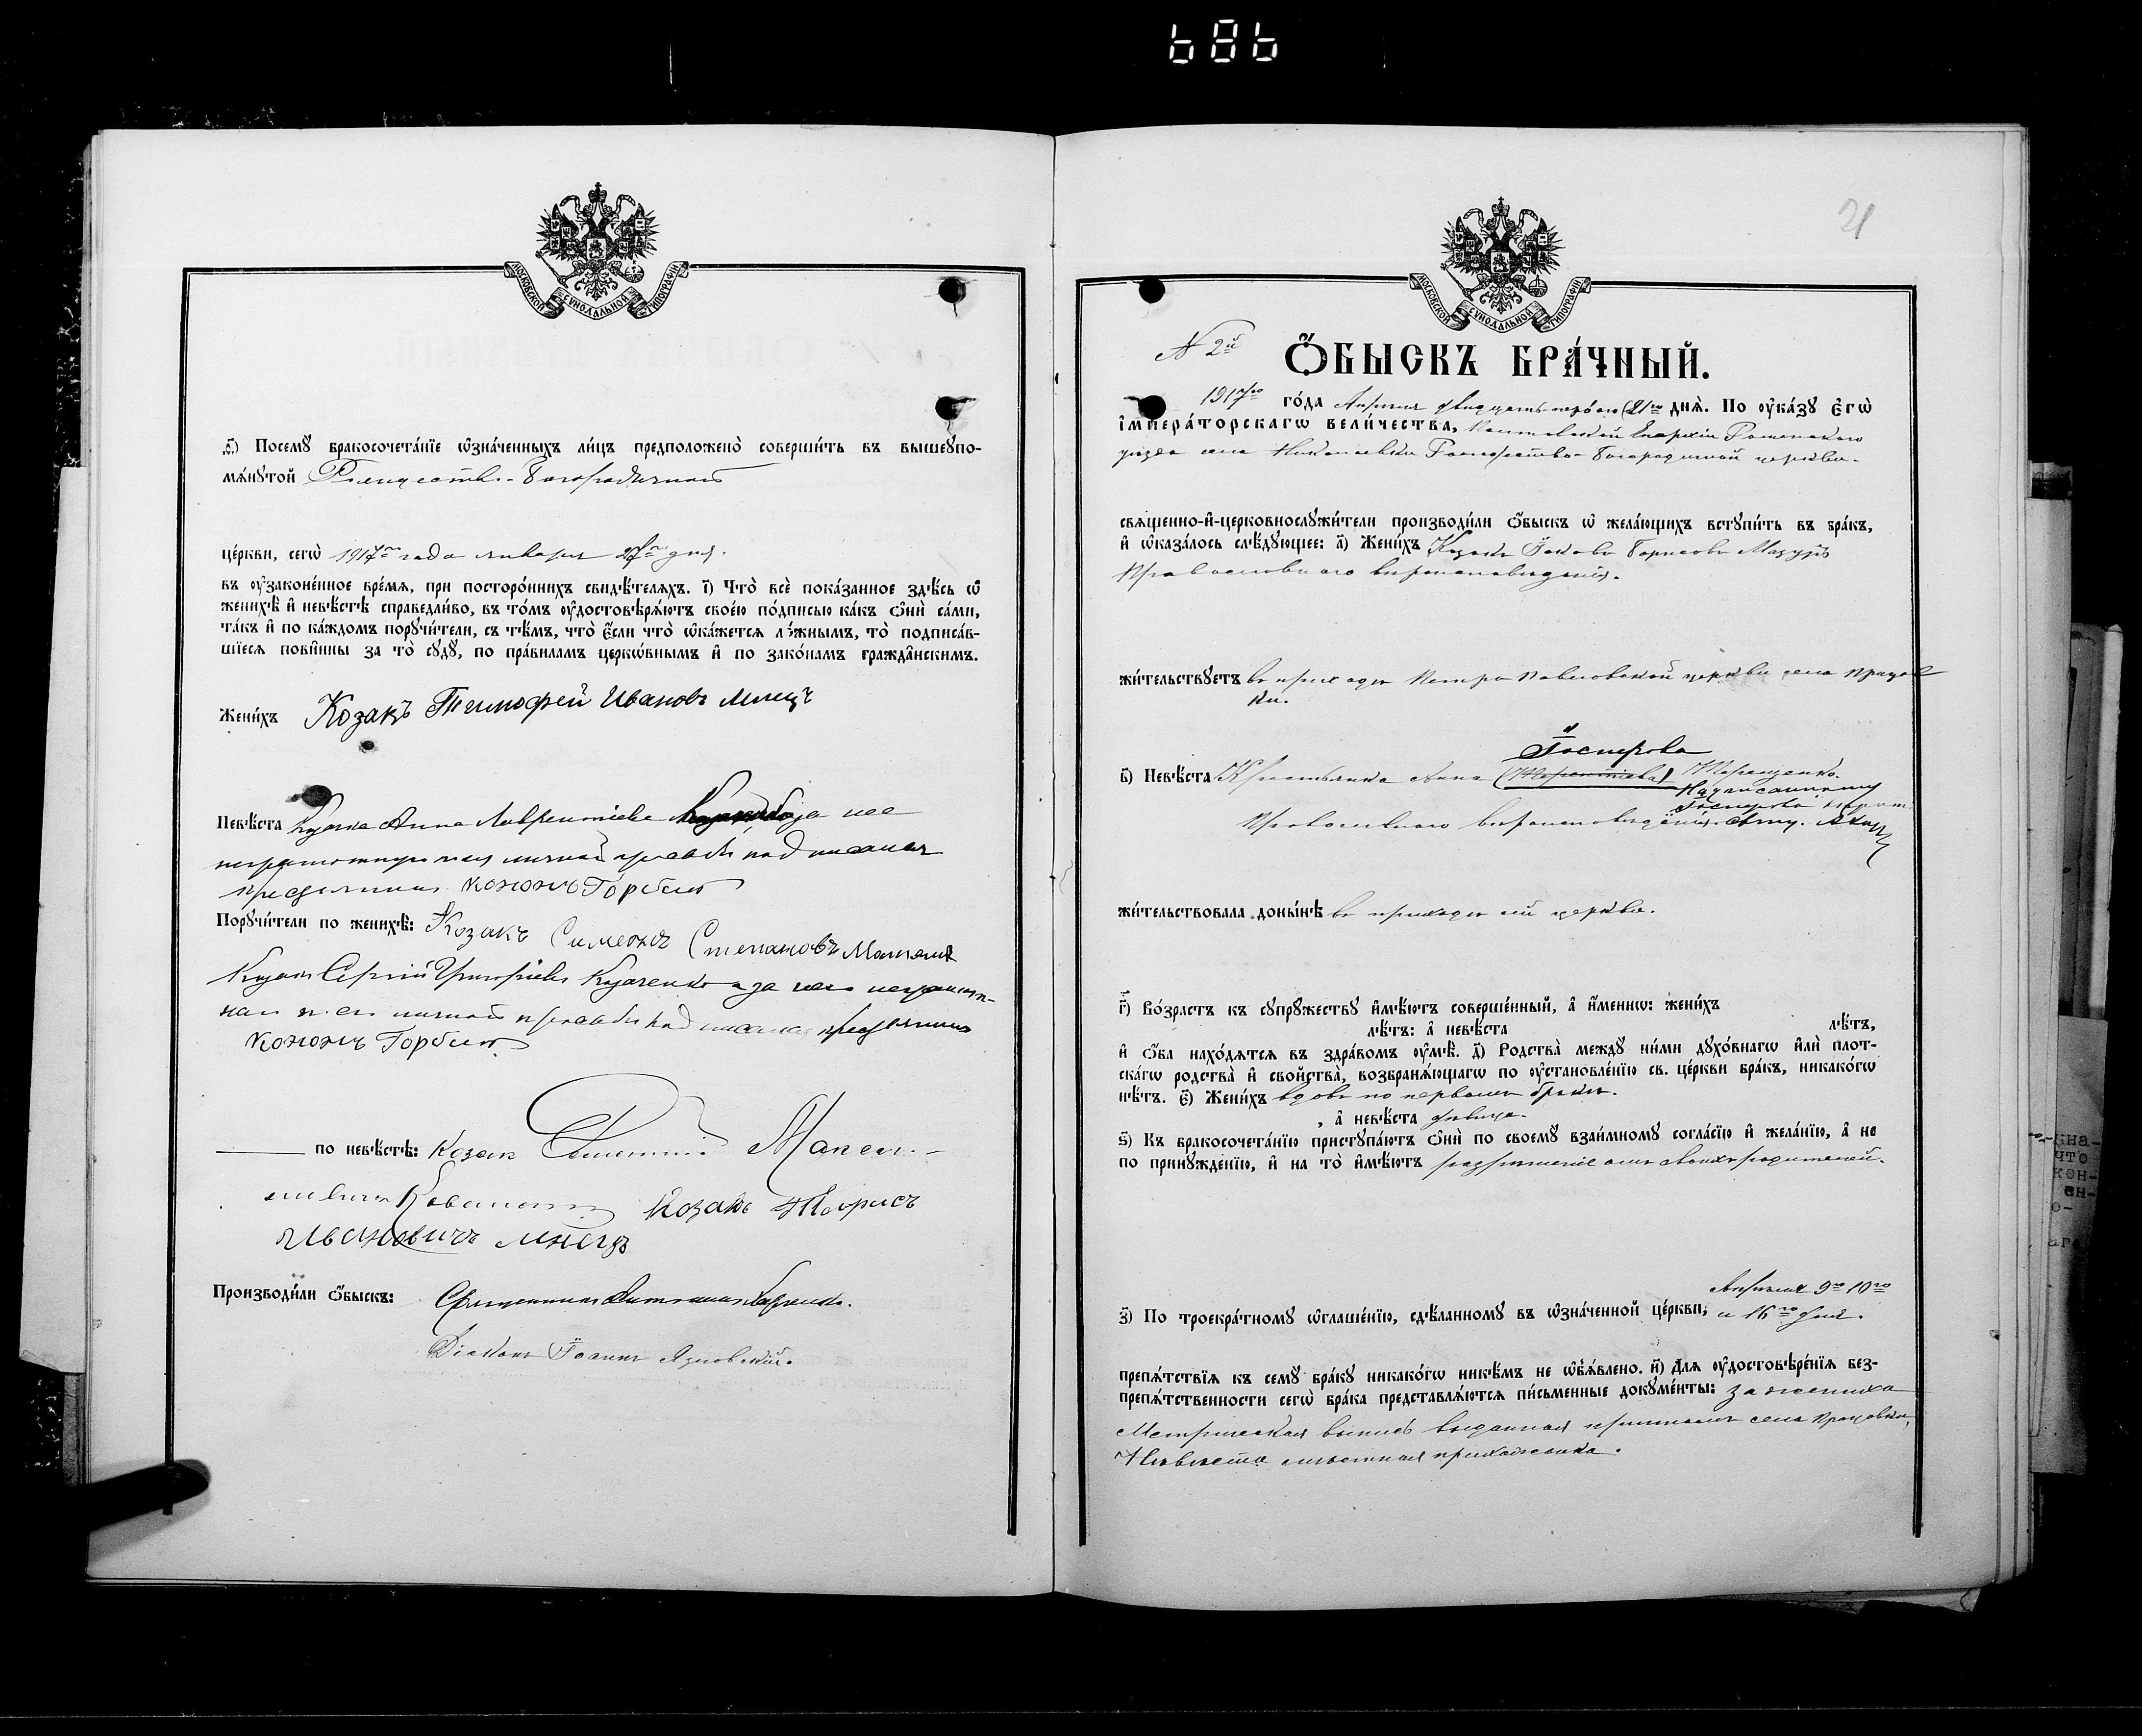 686
МОСКОВСКОЙ СѴНОДАЛЬНОЙ ТИПОГРАФІИ
Посемꙋ̀ бракосочета́нїе ѡ҆зна́ченныхъ ли́цъ предположено̀ соверши́ть въ вышеꙋпо-
мѧ́нꙋтой Рождество-Богородичной
це́ркви, сегѡ̀ 1917го года января 27го дня.
въ ᲂу҆зако́ненное вре́мѧ, при посторо́ннихъ свидѣ́телѧхъ. і҃) Что̀ всѐ пока́занное здѣ́сь ѡ҆
женихѣ̀ и҆ невѣ́стѣ справедли́во, въ то́мъ ᲂу҆достовѣрѧ́ютъ свое́ю по́дписью ка́къ ѻ҆нѝ са́ми,
та́къ и҆ по ка́ждомъ порꙋчи́тели, съ тѣ́мъ, что̀ є҆́сли что̀ ѡ҆ка́жетсѧ ло́жнымъ, то̀ подписа́в-
шїесѧ пови́нны за то̀ сꙋдꙋ̀, по пра́виламъ церко́внымъ и҆ по зако́намъ гражда́нскимъ.
Жени́хъ Козакъ Тимофей Ивановъ
Невѣ́ста Козачка Анна Лаврентіева а за нее
неграмотную по ея личной просьбѣ подписался
Кононъ Горбан
Порꙋчи́тели по женихѣ̀: Козакъ Симеонъ Степановъ
Козакъ Сергій Григоріевъ Козаченко а за него неграмот-
наго по его личной просьбѣ подписался
Кононъ Горбан
по невѣ́стѣ: Козак
Козакъ
Ивановичъ
Производи́ли ѻ҆́быскъ: Священникъ
Діаконъ Іоаннъ
21
МОСКОВСКОЙ СѴНОДАЛЬНОЙ ТИПОГРАФІИ
N 2й Ѻ҆́БЫСКЪ БРА́ЧНЫЙ.
1917го го́да Апрѣля двадцать перваго (21го днѧ̀. По ᲂу҆ка́зꙋ Є҆гѡ̀
І҆мпера́торскагѡ вели́чества, Полтавской Епархіи Роменскаго
уѣзда села Николаевки Рождество-Богородичной церкви.
свѧще́нно-и҆-церковнослꙋжи́тели производи́ли ѻ҆́быскъ ѡ҆ жела́ющихъ встꙋпи́ть въ бра́къ,
и҆ ѡ҆каза́лось слѣ́дꙋющее: а҃) Жени́хъ Козакъ Іаковъ Борисовъ Мазуръ
Православнаго вѣроисповѣданія.
жи́тельствꙋетъ въ приходѣ Петро Павловской церкви села Процов
ки.
Іосифова
в҃) Невѣ́ста Крестьянка Анна (Терентіева) Терещенко.
Надписанному
Православнаго вѣроисповѣданія. "Іосифова" вѣрить.
жи́тельствовала доны́нѣ въ приходѣ сей церкви.
г҃) Во́зрастъ къ сꙋпрꙋ́жествꙋ и҆мѣ́ютъ соверше́нный, а҆ и҆́меннѡ: жени́хъ
лѣ́тъ: а҆ невѣ́ста лѣ́тъ,
и҆ ѻ҆́ба нахо́дѧтсѧ въ здра́вомъ ᲂу҆мѣ̀. д҃) Родства̀ междꙋ̀ ни́ми дꙋхо́внагѡ и҆лѝ плот-
ска́гѡ родства̀ и҆ сво́йства̀, возбранѧ́ющагѡ по ᲂу҆становле́нїю св. це́ркви бра́къ, никако́гѡ
нѣ́тъ. є҃) Жени́хъ вдовъ по первомъ бракѣ.
, а҆ невѣ́ста дѣвица.
ѕ҃) Къ бракосочета́нїю пристꙋпа́ютъ ѻ҆нѝ по своемꙋ̀ взаи́мномꙋ согла́сїю и҆ жела́нїю, а҆ не
по принꙋжде́нїю, и҆ на то̀ и҆мѣ́ютъ разрѣшеніе отъ своихъ родителей.
Апрѣля 9го 10го
з҃) По троекра́тномꙋ ѡ҆глаше́нїю, сдѣ́ланномꙋ въ ѡ҆зна́ченной це́ркви, и 16го дня.
препѧ́тствїѧ къ семꙋ̀ бра́кꙋ никако́гѡ никѣ́мъ не ѡ҆б̾ѧ́влено. и҃) Длѧ ᲂу҆достовѣре́нїѧ без-
препѧ́тственности сегѡ̀ бра́ка представлѧ́ютсѧ пи́сьменные докꙋме́нты: за жениха
Метрическая выпись выданная причтомъ села Процовки,
Невѣста мѣстная прихожанка.